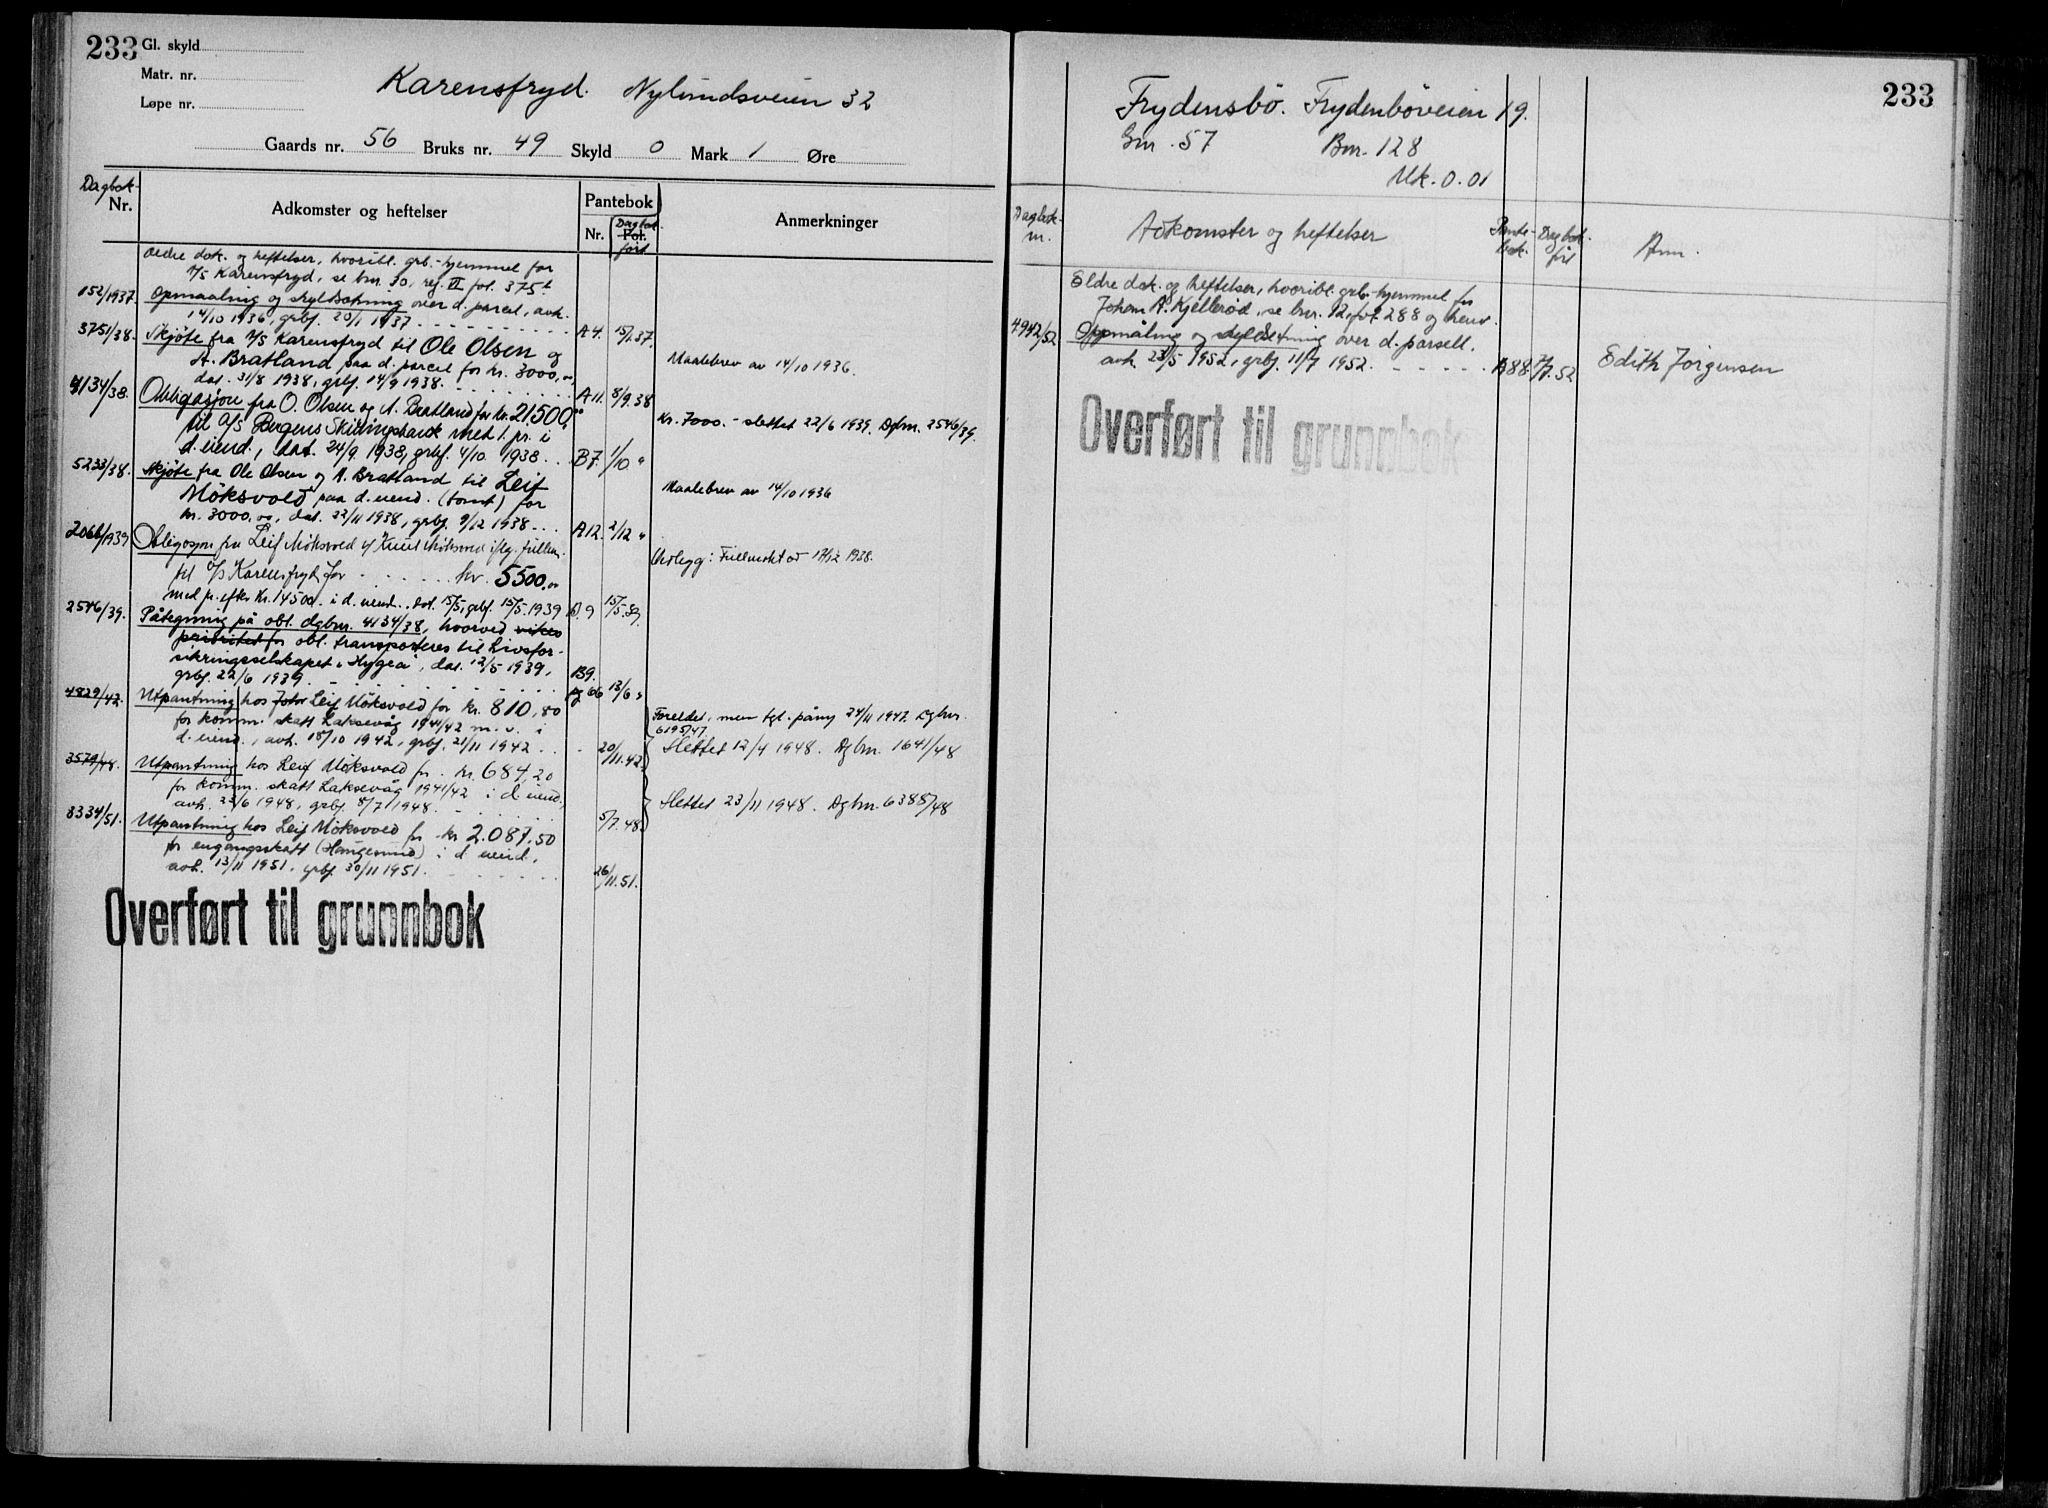 233
Gl. skyld
Matr. nr.
Løpe nr.
Karensfryd. Nylundsveien 32
Gaards nr. 56 Bruks nr. 49 Skyld 0 Mark 1 Øre
Dagbok-
Nr.
Adkomster og heftelser
Pantebok
Nr.
Dagbok
Fol.
ført
Anmerkninger
Oeldre dok. og heftelser, hvoribl. grb.-hjemmel for
A/S Karensfryd, se bnr. 30, reg. VI fol. 375
152/1937. Opmaaling og skyldsetning over d. parcel, avh.
14/10 1936, grbf. 20/1 1937 A4. 15/1.37.
3751/38. Skjöte fra A/S Karensfryd til Ole Olsen og
A. Bratland paa d. parcel for kr. 3000,00
dat. 31/8 1938, grbf. 14/9 1938. A11. 8/9.38
Maalebrev av 14/10 1936.
4134/38. Obligasjon fra O. Olsen og A. Bratland for kr. 21500,00
til A/S Bergens Skillingsbank med 1. pr. i
d. eiend., dat. 24/9 1938, grbf. 4/10 1938 B7. 1/10 "
Kr. 7000.- slettet 22/6 1939. Dgbnr. 2546/39.
5233/38. Skjöte fra Ole Olsen og A. Bratland til Leif
Möksvold paa d. eiend. (tomt) for
kr. 3000,00, dat. 22/11 1938, grbf. 9/12 1938 A12. 2/12 "
Maalebrev av 14/10 1936
2066/1939 Obligasjon fra Leif Möksvold v/ Knut Möksvold iflg. fullm.
til A/S Karensfryd for kr. 5500,00
med pr. efter kr. 14500. i d. eiend. dat. 15/5, grbf. 15/5 1939 B.9 15/5.39.
Vedlegg: Fullmakt av 17/12 1938.
2546/39. Påtegning på obl. dgbnr. 4134/38, hvorved viker
prioritet for obl. transporteres til Livsfor-
sikringsselskapet "Hygea", dat. 12/5 1939,
grbf. 22/6 1939 B9. pg 66 13/6 "
4829/42. Utpantning hos John Leif Möksvold for kr. 810,80
for komm. skatt Laksevåg 1941/42 m. v. i
d. eiend., avh. 18/10 1942, grbf. 21/11 1942 20/11.42.
Foreldet, men tgl. påny 24/11 1947. Dgbnr.
6195/47.
Slettet 12/4 1948. Dgbnr. 1641/48
3579/48. Utpantning hos Leif Möksvold for kr. 684,20
for komm. skatt Laksevåg 1941/42 i d. eiend.
avh. 23/6 1948, grbf. 8/7 1948. 5/7.48.
Slettet 23/11 1948. Dgbnr. 6385/48
8334/51. Utpantning hos Leif Möksvold for kr 2.087,50
for engangsskatt (Haugesund) i d. eiend.
avh. 13/11 1951, grbf. 30/11 1951. 26/11.51.
Overført til grunnbok
233
Frydensbö. Frydenböveien 19.
Gnr. 57 Bnr. 128
Mk. 0.01
Dagbok-
nr.
Adkomster og heftelser
Pante-
bok.
Dagbok-
ført
Anm.
Eldre dok. og heftelser, hvoribl. grb.-hjemmel for
Johan A. Kjellerød, se bnr. 12, fol. 288 og henv.
4942/52 Oppmåling og skyldsetning over d. parsell.
avh. 23/5 1952, grbf. 11/7 1952. A88. 7/7.52 Edith Jörgensen
Overført til grunnbok